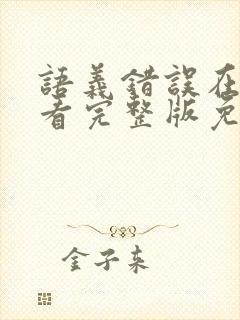 語義錯誤在
看完整版免
金子来